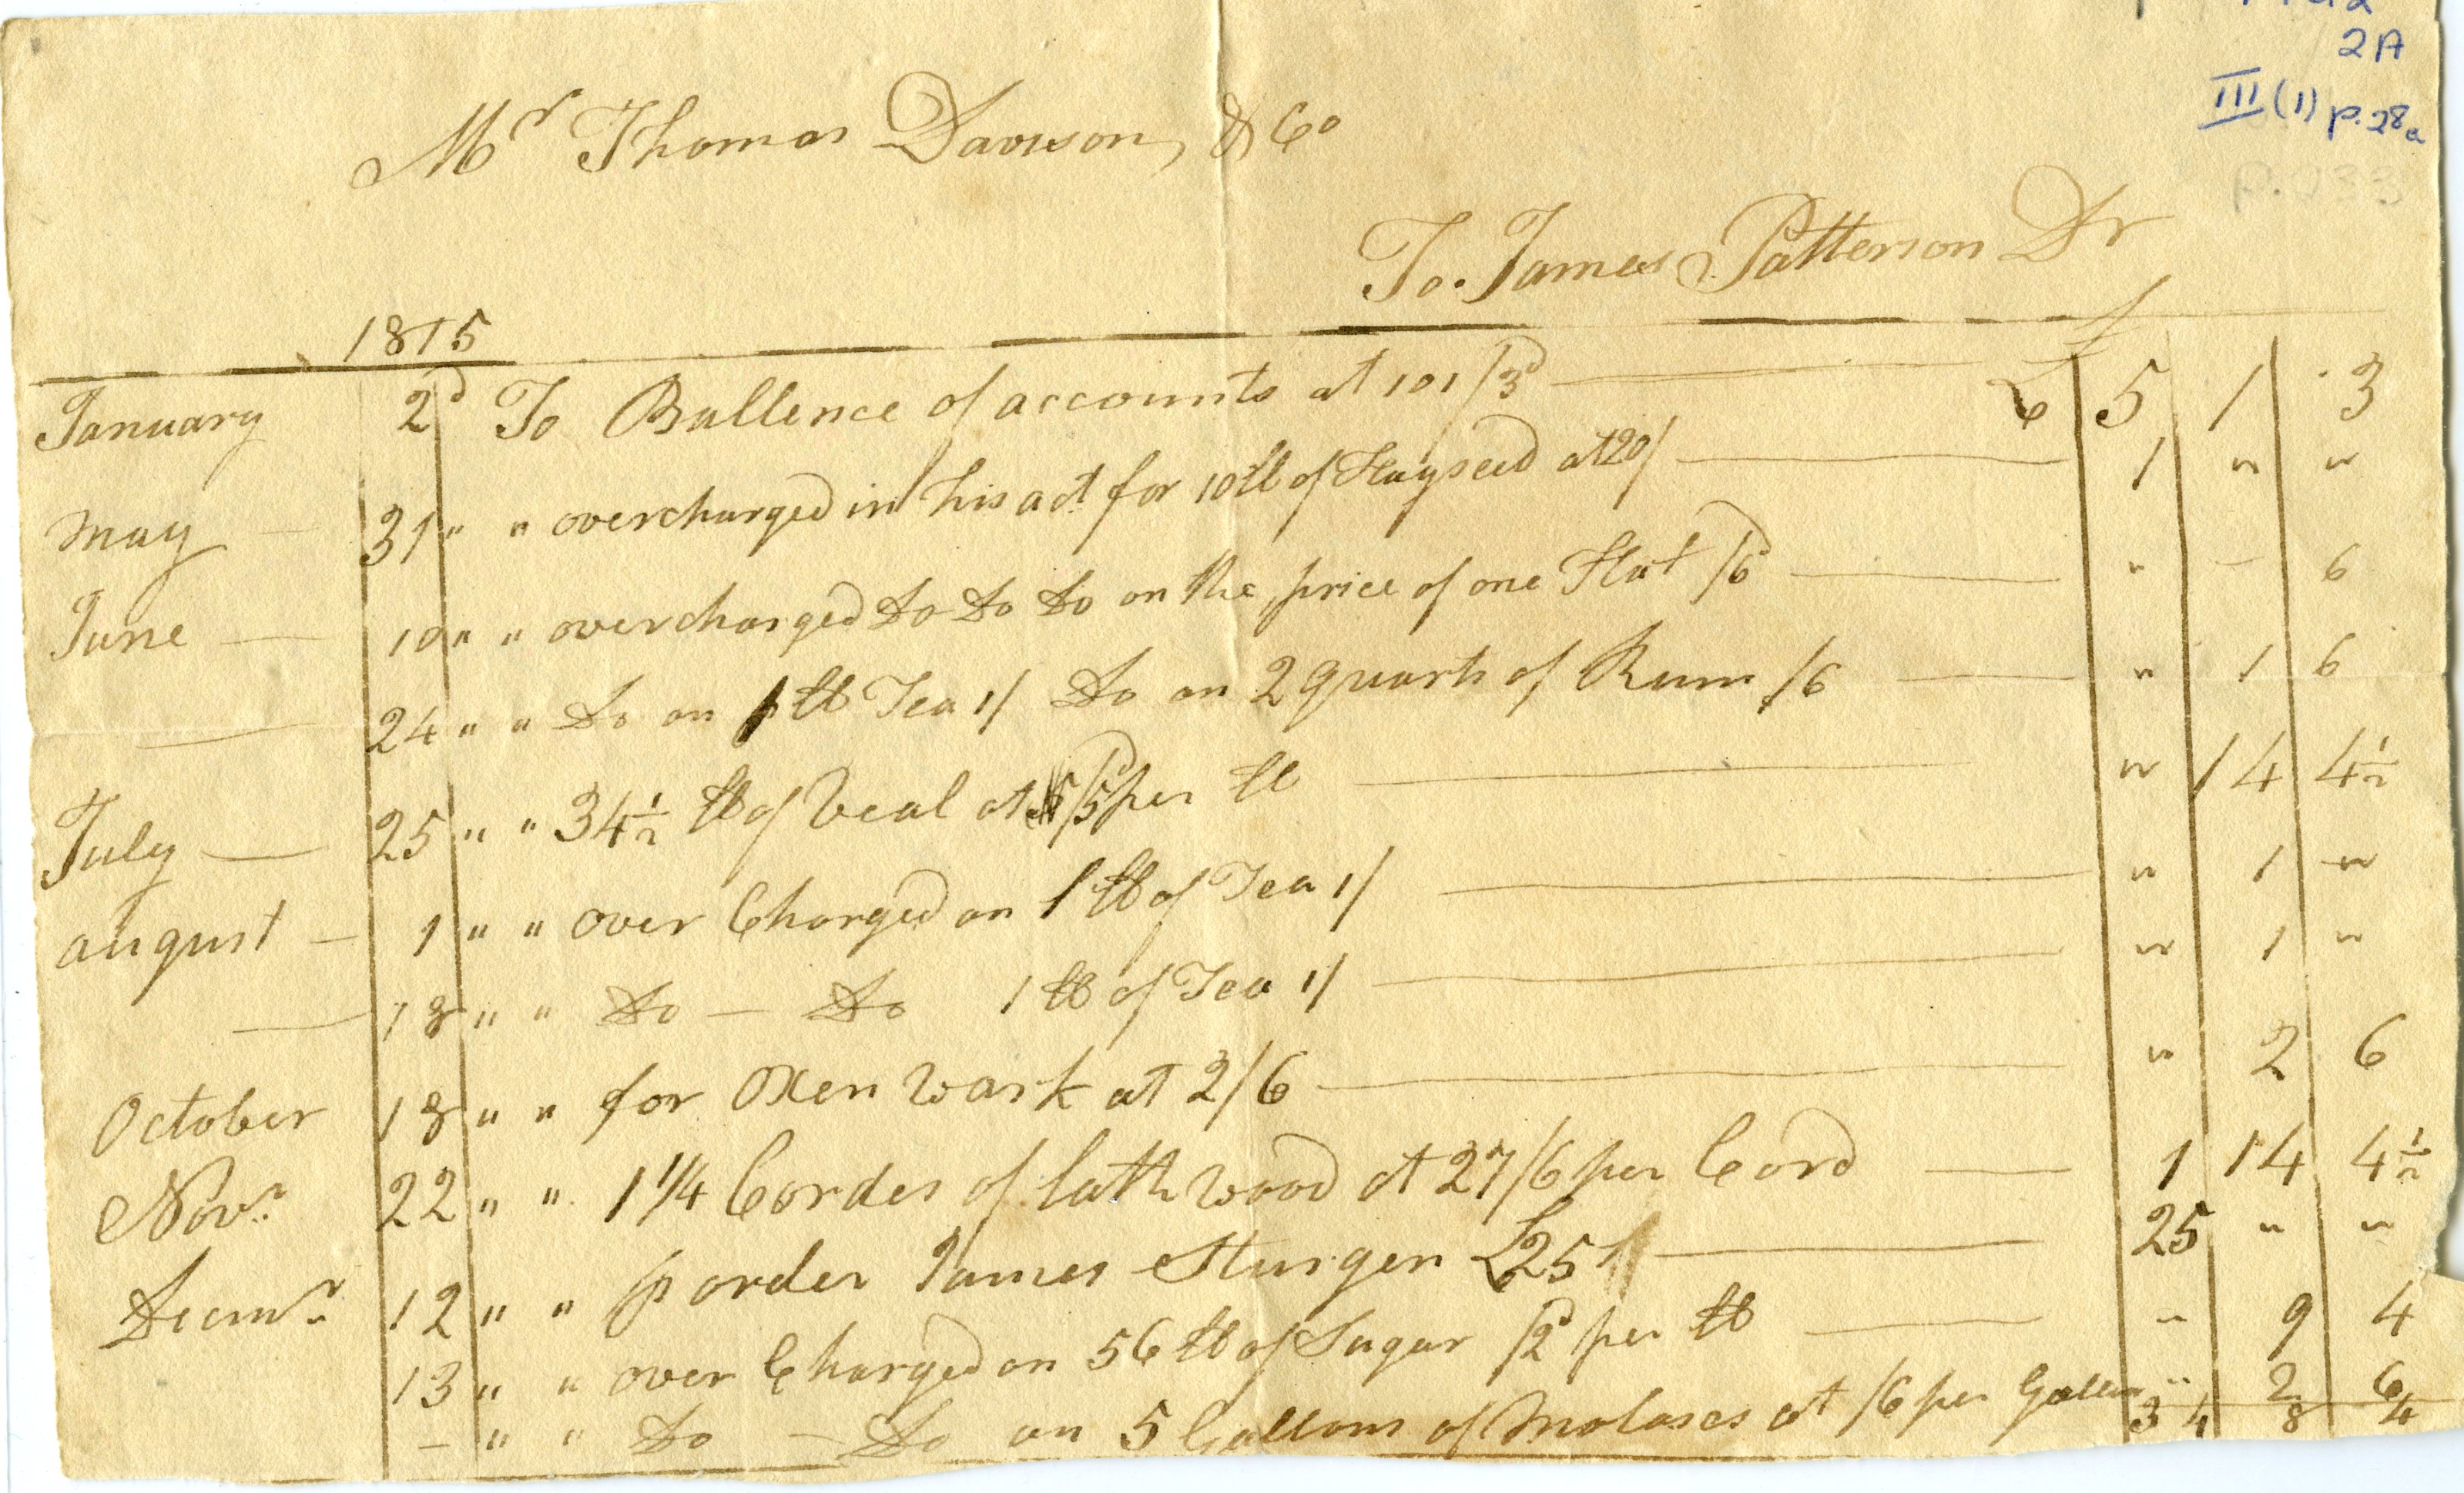 2A
III (1) p.28a
Mr Thomas Dawson, & Co
To. James Patterson Dr
1815
January 2d To Ballence of accounts at 101/3d £ 5 1 3
May 31 " " overcharged in his act for 10 lb of Hayseed at 20/ 1 " "
June 10 " " overcharged Do Do Do on the price of one Hat /6d " - 6
24 " " Do on 1 lb Tea 1/ Do on 2 quarts of Rum /6 " 1 6
July 25 " " 34½ lb of Veal at /5d per lb " 14 4½
august 1 " " over Charged on 1 lb of Tea 1/ " 1 "
18 " " Do - Do 1 lb of Tea 1/ " 1 "
October 18 " " for Oxen Wark at 2/6 " 2 6
Novr. 22 " " 1 1/4 Cordes of lath Wood at 27/6 per Cord 1 14 4½
Decmr. 12 " " p order James Sturgen £25 25 " "
13 " " over Charged on 56 lb of Sugar /2d per lb " 9 4
- " " Do - Do on 5 Gallons of Molases at /6 per Gallon " 2 6
34 8 4